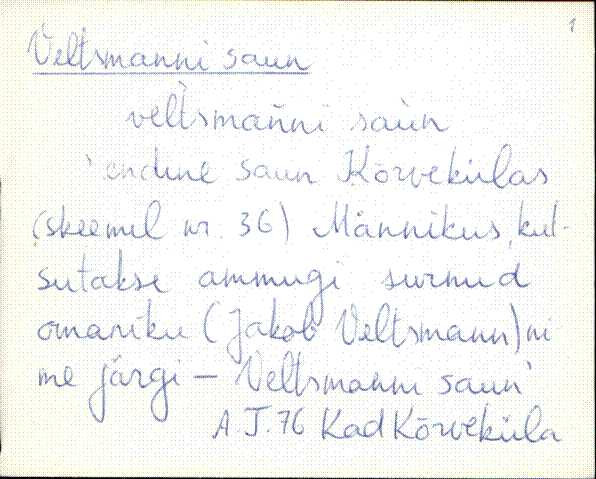 1
Veltsmanni saun
veltsmañni saùn
'endine saun Kõrvekülas
(skeemil nr. 36) Männikus, kut-
sutakse ammugi surnud
omaniku (Jakob Veltsmann) ni
me järgi – Veltsmanni saun'
A.J.76 Kad Kõrveküla